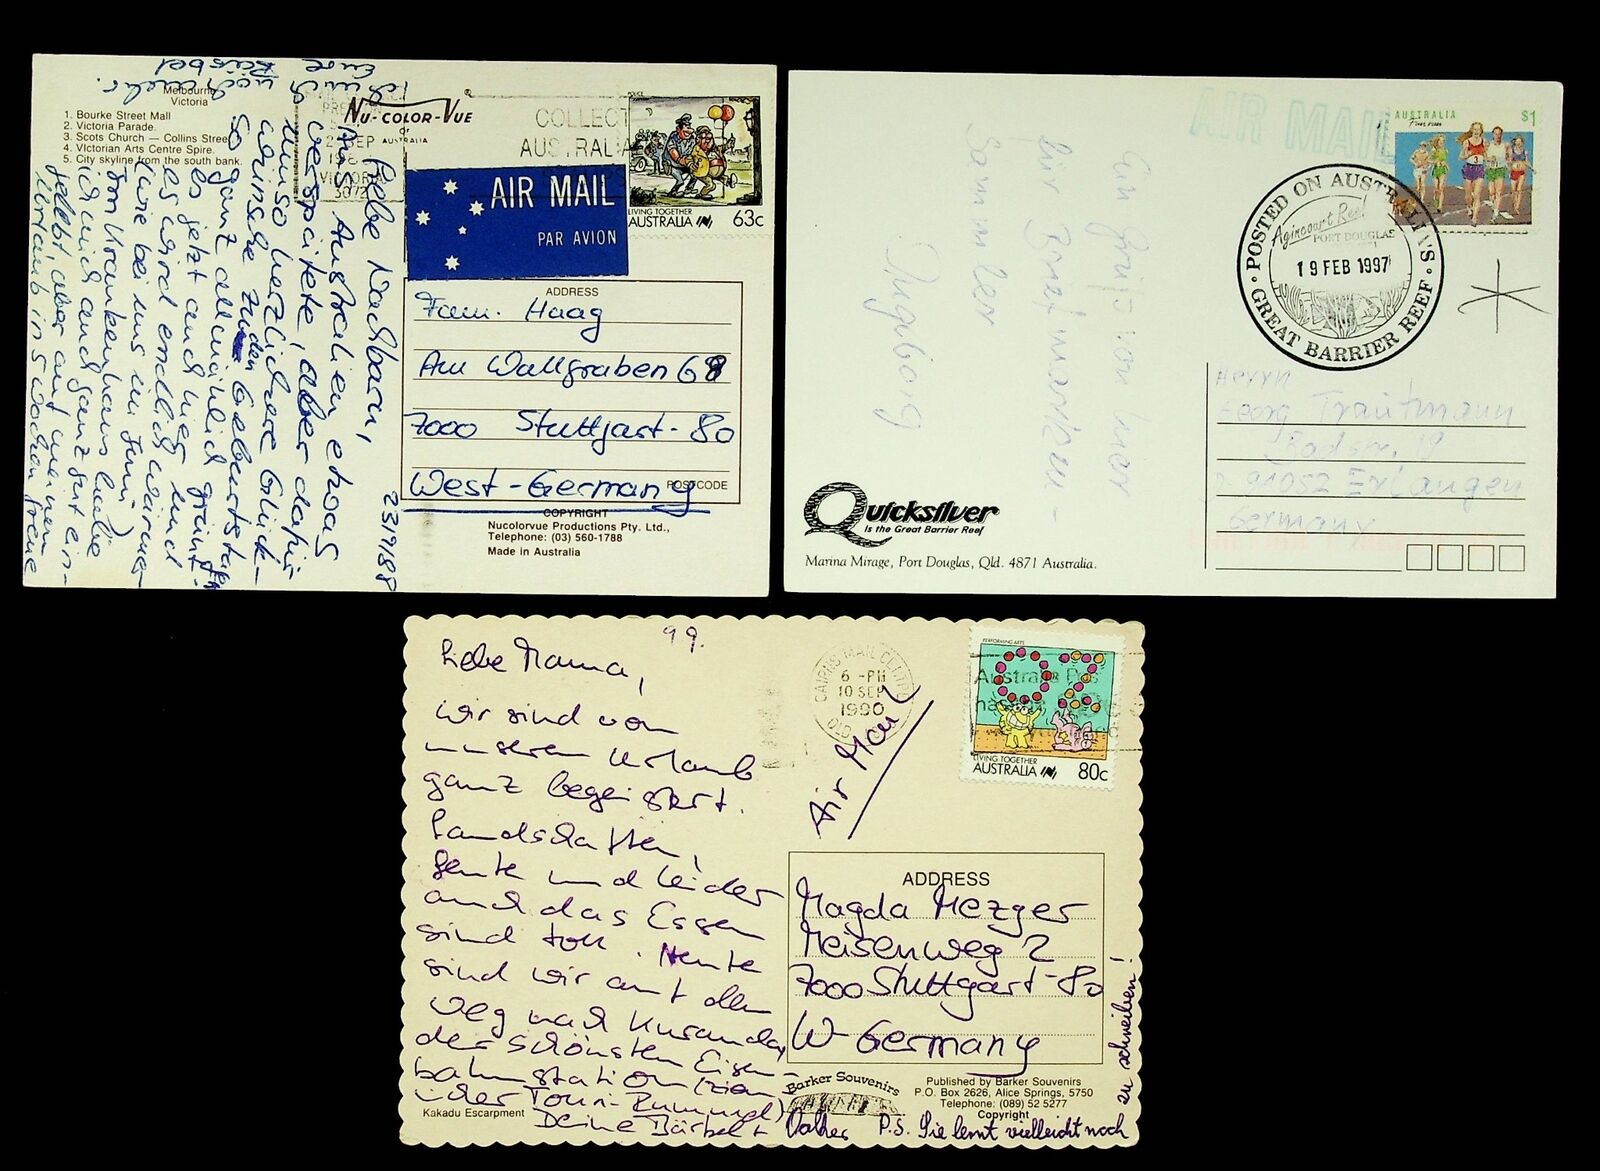 Melbourne
Victoria
1. Bourke Street Mall
2. Victoria Parade.
3. Scots Church — Collins Street
4. VIctorian Arts Centre Spire.
5. City skyline from the south bank.
NU-COLOR-VUE
OF
AUSTRALIA
COLLECT
AUSTRALIA
POLICE
LIVING TOGETHER
AUSTRALIA 63c
AIR MAIL
PAR AVION
23/9/88
Liebe Nachbarn,
Aus Australien etwas
verspätete, aber dafür
umso herzlichere Glück-
wünsche zu den Geburtstagen
So ganz allmählich grünt
es jetzt auch hier und
es wird endlich wärmer
(wie bei uns im Juni)
Im Krankenhaus habe
ich mich auch ganz gut ein-
gelebt, aber auf meinen
Urlaub in 5 Wochen freue
ich mich noch mehr
Eure
ADDRESS
Fam. Haag
Am Wallgraben 68
7000 Stuttgart-80
West-Germany
POSTCODE
COPYRIGHT
Nucolorvue Productions Pty. Ltd.,
Telephone: (03) 560-1788
Made in Australia
AIR MAIL
AUSTRALIA $1
POSTED ON AUSTRALIA'S
Agincourt Reef
PORT DOUGLAS
19 FEB 1997
GREAT BARRIER REEF
Ein Gruß von hier
für Briefmarken-
Sammler
Herrn
Georg Trautmann
91052 Erlangen
Germany
Quicksilver
is the Great Barrier Reef
Marina Mirage, Port Douglas, Qld. 4871 Australia.
99.
Liebe Mama,
wir sind von
unserem Urlaub
ganz begeistert.
Landschaften,
Leute und leider
auch das Essen
sind toll. Heute
sind wir auf dem
Weg nach Kuranda,
der schönsten Eisen-
bahnstation
der Touri-Rummel)
Deine Bärbel +
P.S. Sie lernt vielleicht noch
zu schreiben!
CAIRNS MAIL CENTRE
6 -PM
10 SEP
1990
QLD
Air Mail
PERFORMING ARTS
OZ
LIVING TOGETHER
AUSTRALIA 80c
ADDRESS
Magda Mezger
Meisenweg 2
7000 Stuttgart-80
W-Germany
Kakadu Escarpment
Barker Souvenirs
Published by Barker Souvenirs
P.O. Box 2626, Alice Springs, 5750
Telephone: (089) 52 5277
Copyright